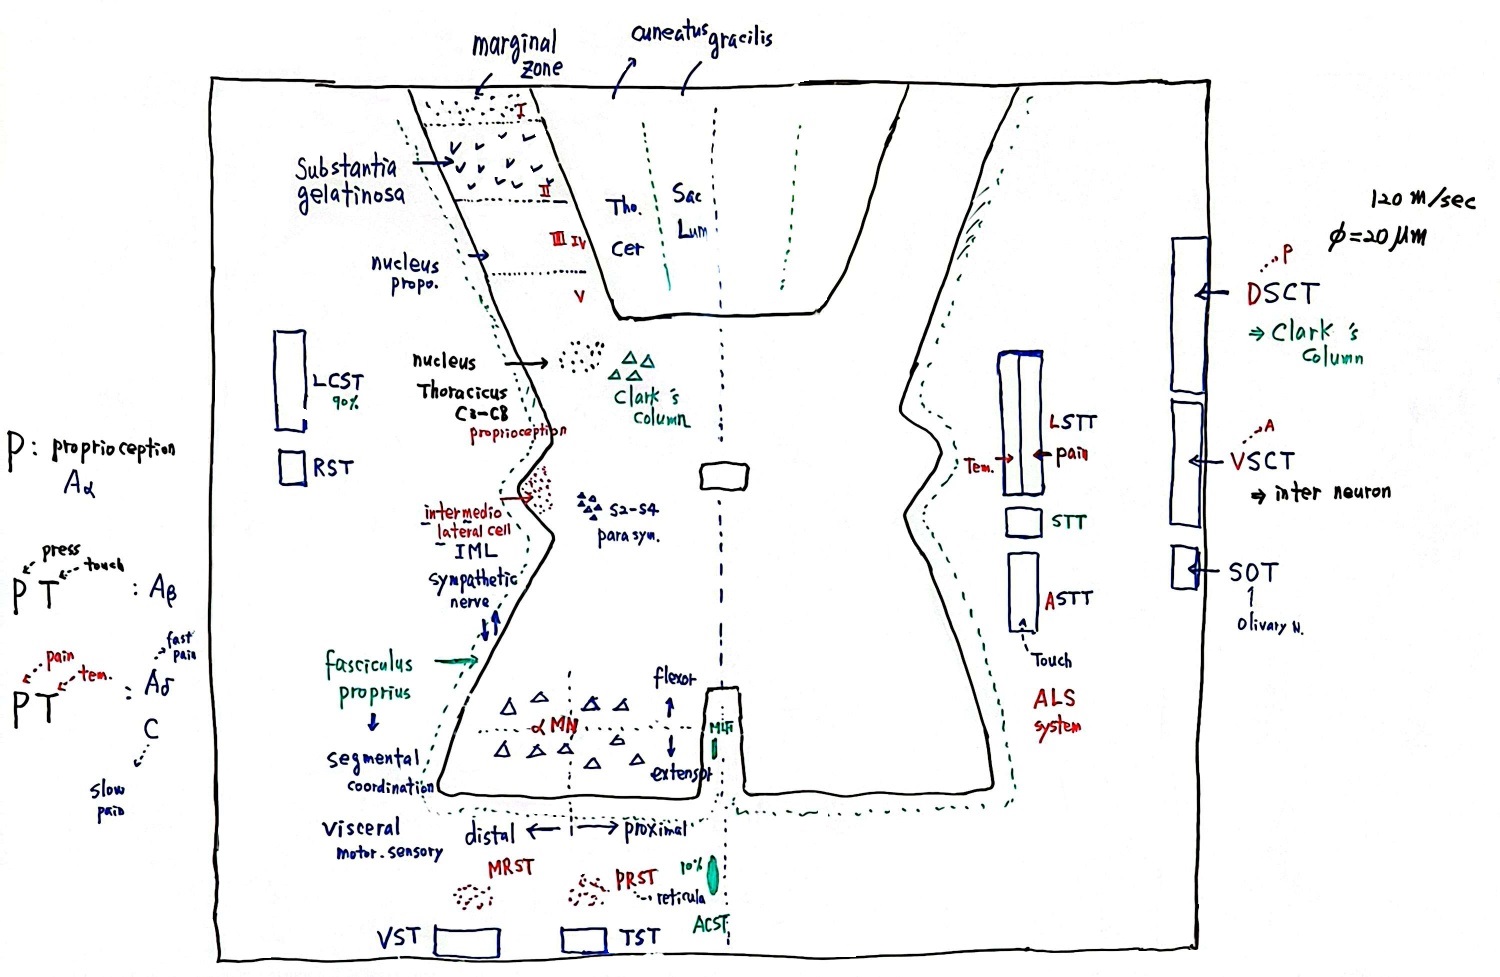 marginal
zone
cuneatus
gracilis
I
Substantia
gelatinosa
II
III IV
nucleus
propo.
V
Tho.
Cer
Sac
Lum
120 m/sec
φ=20 μm
P
DSCT
⇒ Clark's
column
A
VSCT
⇒ inter neuron
SOT
Olivary N.
LCST
90%
RST
nucleus
Thoracicus
C3-C8
proprioception
Clark's
column
P: proprioception
Aα
press
touch
PT : Aβ
pain
tem.
PT : Aδ
fast
pain
C
slow
pain
intermedio
lateral cell
IML
sympathetic
nerve
S2-S4
para sym.
LSTT
Tem. → ← pain
STT
ASTT
Touch
ALS
system
fasciculus
proprius
segmental
coordination
Visceral
motor.sensory
αMN
flexor
extensor
MLF
distal ← → proximal
MRST
PRST
reticula
10%
ACST
VST
TST